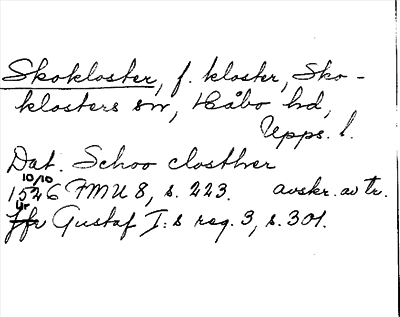 Skokloster, f. kloster, Sko-
klosters sn, Håbo hd,
Upps. l.
Dat. Schoo closther
10/10
1526 FMU 8, s. 223. avskr. av tr.
Ur
Jfr Gustaf I:s reg. 3, s. 301.